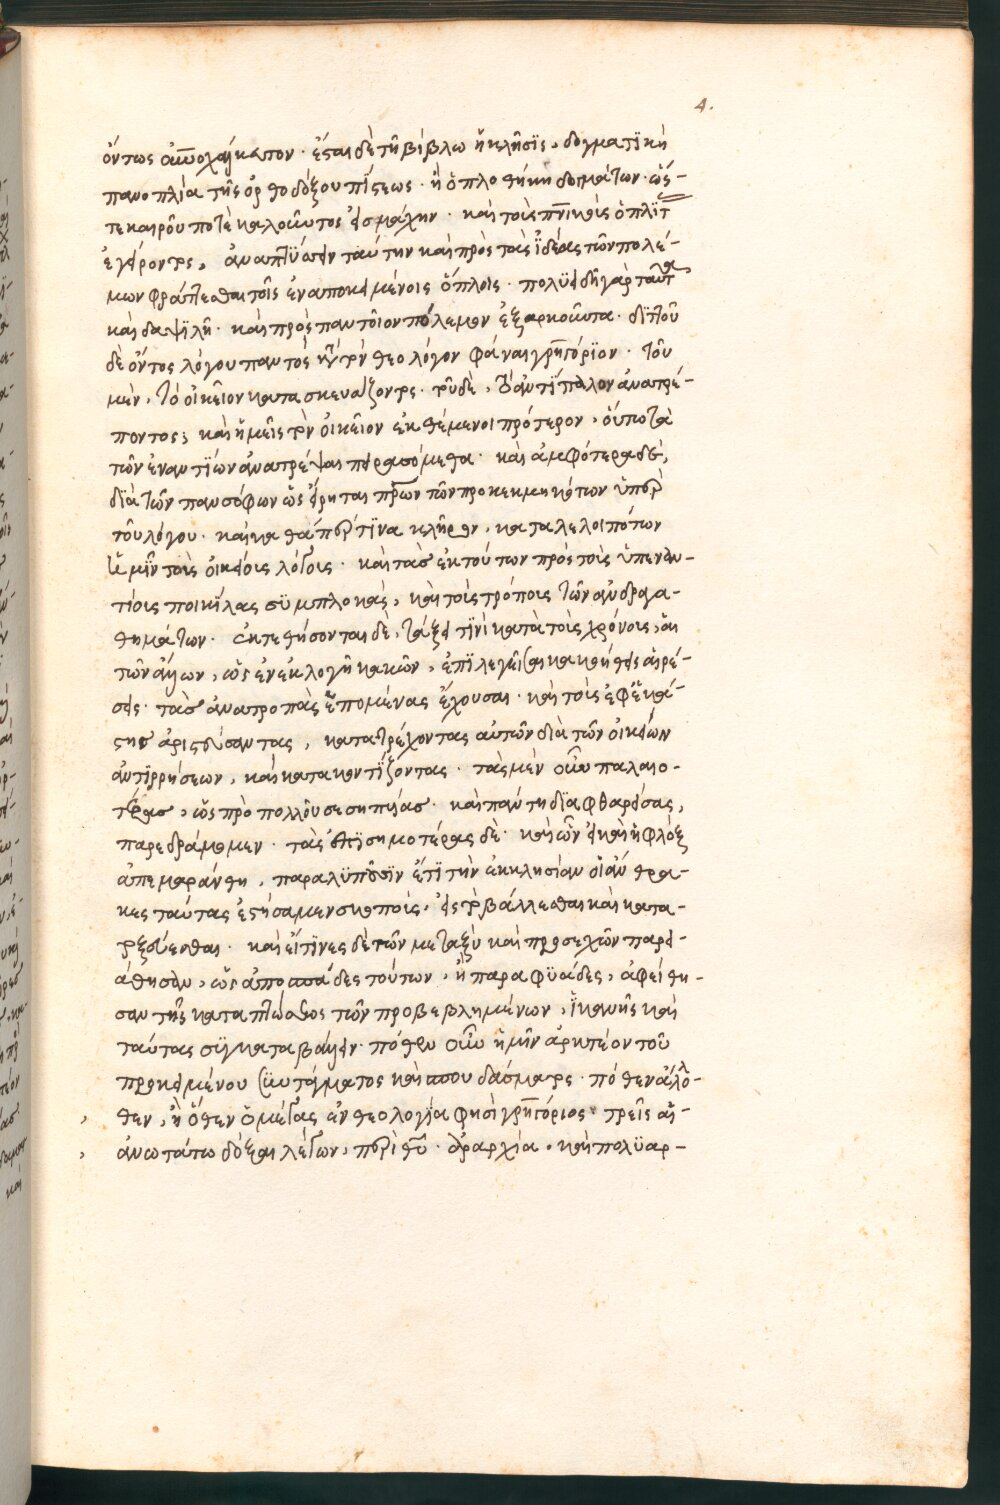 4.
ὄντως ἀξιολογώτατον · ἔσται δὲ τῇ βίβλω ἡ κλῆσϊς, δογματϊκὴ
πανοπλία τῆς ὀρθοδόξου πίστεως · ἢ ὁπλοθήκη δογμάτων · ὥσ-
τε καιροῦ ποτὲ καλοῦντος εἰς μάχην · καὶ τοὺς πνικοὺς ὁπλίτ
ἐγείροντος, ἀναπτύσσειν ταύτην καὶ πρὸς τὰς ἰδέας τῶν πολέ-
μων φράττεσθαι τοῖς ἐναποκειμένοις ὅπλοις · πολυειδῆ γὰρ ταῦτα
καὶ δαψιλῆ · καὶ πρὸς παντοῖον πόλεμον ἐξαρκοῦντα · διττοῦ
δὲ ὄντος λόγου παντὸς κατὰ τὸν θεολόγον φάναι γρηγόριον · τοῦ
μὲν, τὸ οἰκεῖον κατασκευάζοντος · τοῦ δὲ, τὸ ἀντίπαλον ἀνατρέ-
ποντος; καὶ ἡμεῖς τὸν οἰκεῖον ἐκθέμενοι πρότερον, οὕτω τὰ
τῶν ἐναντίων ἀνατρέψαι πειρασόμεθα · καὶ ἀμφότερα δὲ,
διὰ τῶν πανσόφων ὡς εἴρηται πρων τῶν προκεκμηκότων ὑπὲρ
τοῦ λόγου · καὶ καθάπερ τινα κλῆρον, καταλελοιπότων
ἡμῖν τοὺς οἰκείους λόγους · καὶ τὰς ἐκ τούτων πρὸς τοὺς ὑπεναν-
τίους ποικίλας συμπλοκὰς, καὶ τοὺς τρόπους τῶν ἀνδραγα-
θημάτων · ἐκτεθήσονται δὲ, τάξει τινὶ κατὰ τοὺς χρόνους, αἱ
τῶν ἄλλων, ὡς ἐν ἐκλογῇ κακῶν, ἐπιλεγεῖσαι καὶ αἱρέ-
σεις · τὰς ἀνατροπὰς ἑπομένας ἔχουσαι · καὶ τοὺς ἐφ' ἑκά-
στης ἀριστεύσαντας, κατατρέχοντας αὐτῶν διὰ τῶν οἰκείων
ἀντιρρήσεων, καὶ κατακοντίζοντας · τὰς μὲν οὖν παλαιο-
τέρας, ὡς πρὸ πολλοῦ σεσηπυίας · καὶ πάντη διαφθαρείσας,
παρεδράμομεν · τὰς ἐπισημοτέρας δὲ · καὶ ὧν εἰ καὶ ἡ φλὸξ
ἀπεμαράνθη, παραλυποῦσιν ἔτι τὴν ἐκκλησίαν οἱ ἄνθρα-
κες ταύτας ἐστήσαμεν σκοποὺς, εἰς τὸ βάλλεσθαι καὶ κατα-
τοξεύεσθαι · καὶ εἴ τινες δὲ τῶν μεταξὺ καὶ προσεχῶν παρεί-
άθησαν, ὡς ἀποσπάδες τούτων, ἢ παραφυάδες, ἀφείθη-
σαν τῆς καταπτώσεως τῶν προβεβλημένων, ἱκανῆς καὶ
ταύτας συγκαταβαλεῖν · πόθεν οὖν ἡμῖν ἀρκτέον τοῦ
προκειμένου συντάγματος καὶ σπουδάσματος · πόθεν ἄλλο-
θεν, ἢ ὅθεν ὁ μέγας ἐν θεολογία φησὶ γρηγόριος · τρεῖς αἱ
ἀνωτάτω δόξαι λέγων, περὶ θῦ · ἀναρχία · καὶ πολυαρ-